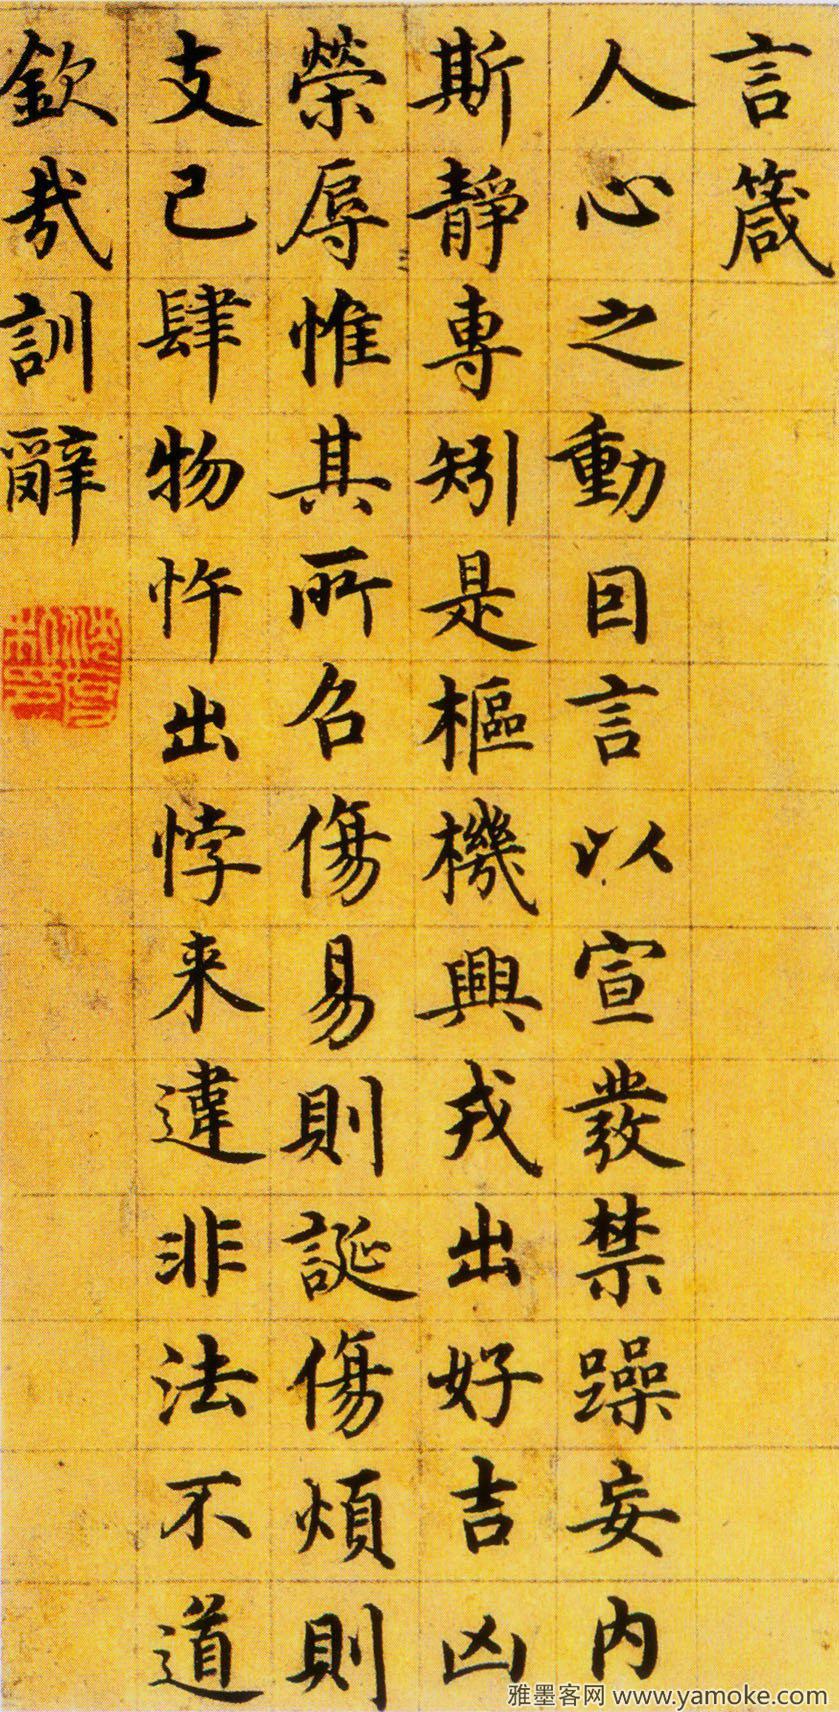 言箴
人心之動因言以宣發禁躁妄内
斯靜專矧是樞機興戎出好吉凶
榮辱惟其所召傷易則誕傷煩則
支己肆物忤出悖来違非法不道
欽哉訓辭
雅墨客网 www.yamoke.com